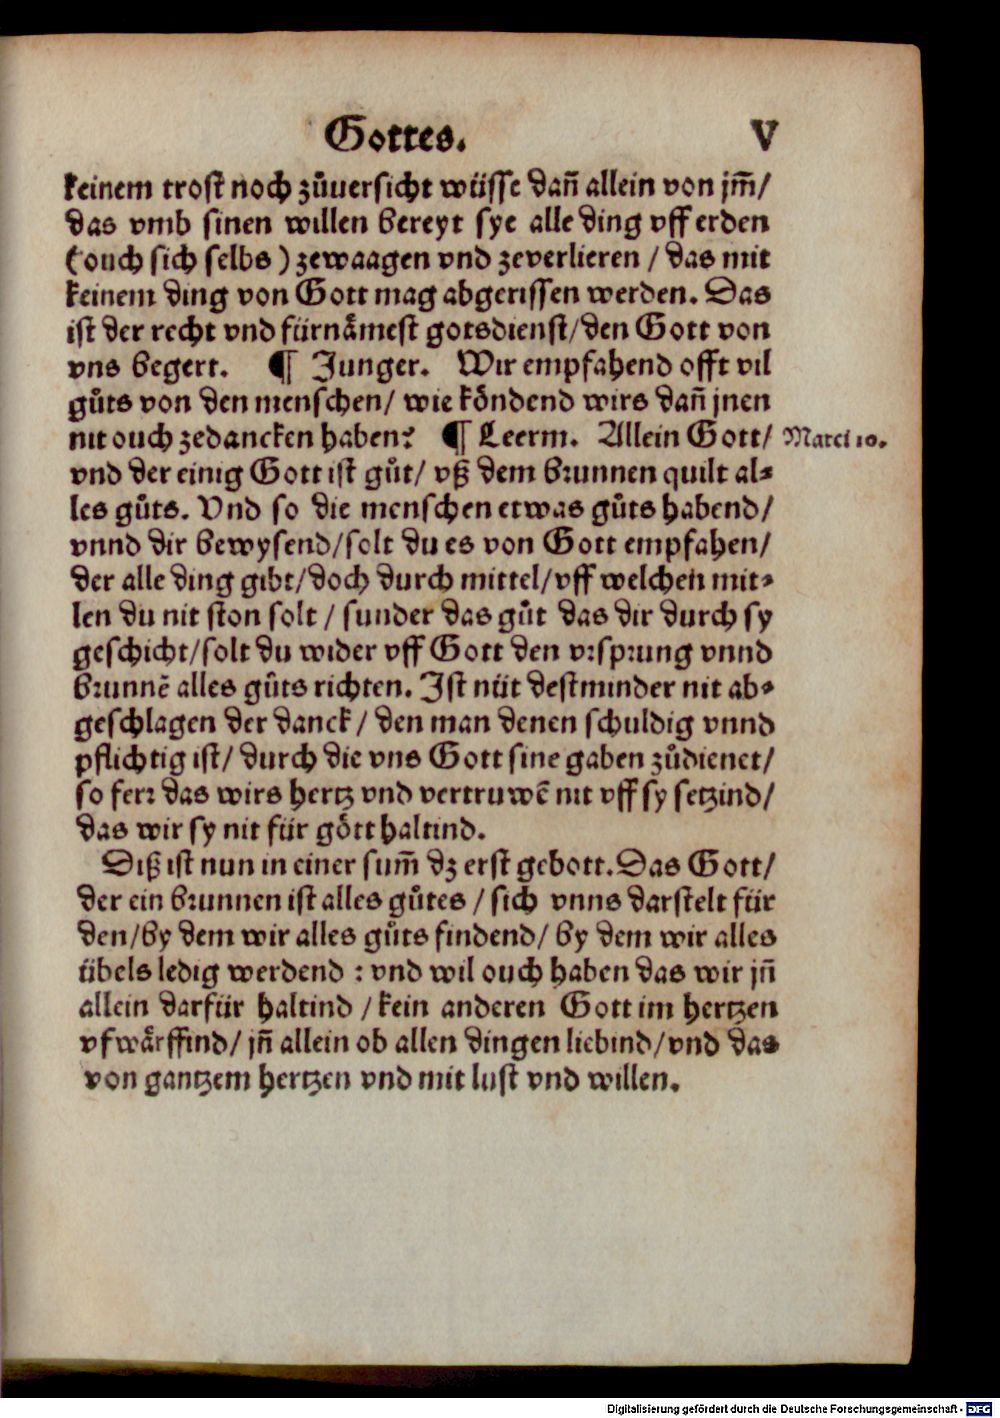 Gottes. V
keinem trost noch zůuersicht wüsse dañ allein von jm̃/
das vmb sinen willen bereyt sye alle ding vff erden
(ouch sich selbs) zewaagen vnd zeverlieren / das mit
keinem ding von Gott mag abgerissen werden. Das
ist der recht vnd fürnaͤmest gotsdienst/den Gott von
vns begert. ¶ Junger. Wir empfahend offt vil
gůts von den menschen/ wie koͤndend wirs dañ jnen
nit ouch zedancken haben? ¶ Leerm. Allein Gott/ Marci 10.
vnd der einig Gott ist gůt/ vß dem brunnen quilt al⸗
les gůts. Vnd so die menschen etwas gůts habend/
vnnd dir bewysend/solt du es von Gott empfahen/
der alle ding gibt/doch durch mittel/vff welchen mit⸗
len du nit ston solt / sunder das gůt das dir durch sy
geschicht/solt du wider vff Gott den vrsprung vnnd
brunnẽ alles gůts richten. Ist nüt destminder nit ab⸗
geschlagen der danck / den man denen schuldig vnnd
pflichtig ist/ durch die vns Gott sine gaben zůdienet/
so ferr das wirs hertz vnd vertruwẽ nit vff sy setzind/
das wir sy nit für goͤtt haltind.
Diß ist nun in einer sum̃ dz erst gebott. Das Gott/
der ein brunnen ist alles gůtes / sich vnns darstelt für
den/by dem wir alles gůts findend/ by dem wir alles
übels ledig werdend : vnd wil ouch haben das wir jñ
allein darfür haltind / kein anderen Gott im hertzen
vfwaͤrffind/ jñ allein ob allen dingen liebind/vnd das
von gantzem hertzen vnd mit lust vnd willen.
Digitalisierung gefördert durch die Deutsche Forschungsgemeinschaft - DFG